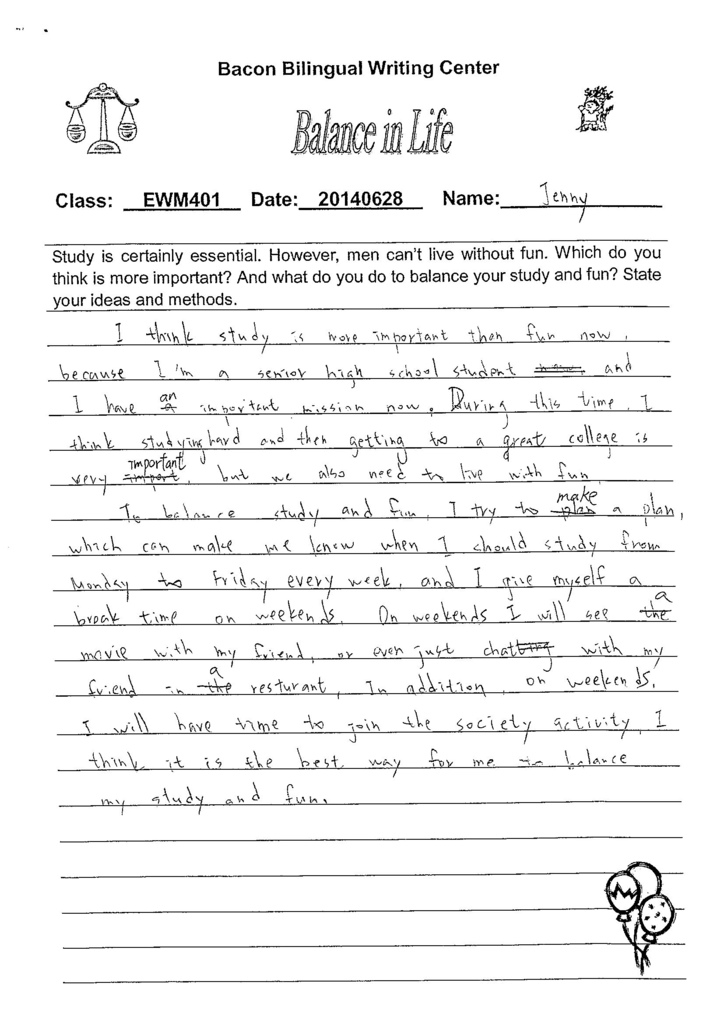 Bacon Bilingual Writing Center
Balance in Life
Class: EWM401 Date: 20140628 Name: Jenny
Study is certainly essential. However, men can't live without fun. Which do you
think is more important? And what do you do to balance your study and fun? State
your ideas and methods.
I think study is more important then fun now,
because I'm a senior high school student and
I have an important mission now. During this time, I
think studying hard and then getting to a great college is
very important, but we also need to live with fun.
To balance study and fun, I try to make a plan,
which can make me know when I should study from
Monday to Friday every week, and I give myself a
break time on weekends. On weekends I will see a
movie with my friend, or even just chat with my
friend in a resturant, In addition, on weekends,
I will have time to join the society activity, I
think it is the best way for me to balance
my study and fun.